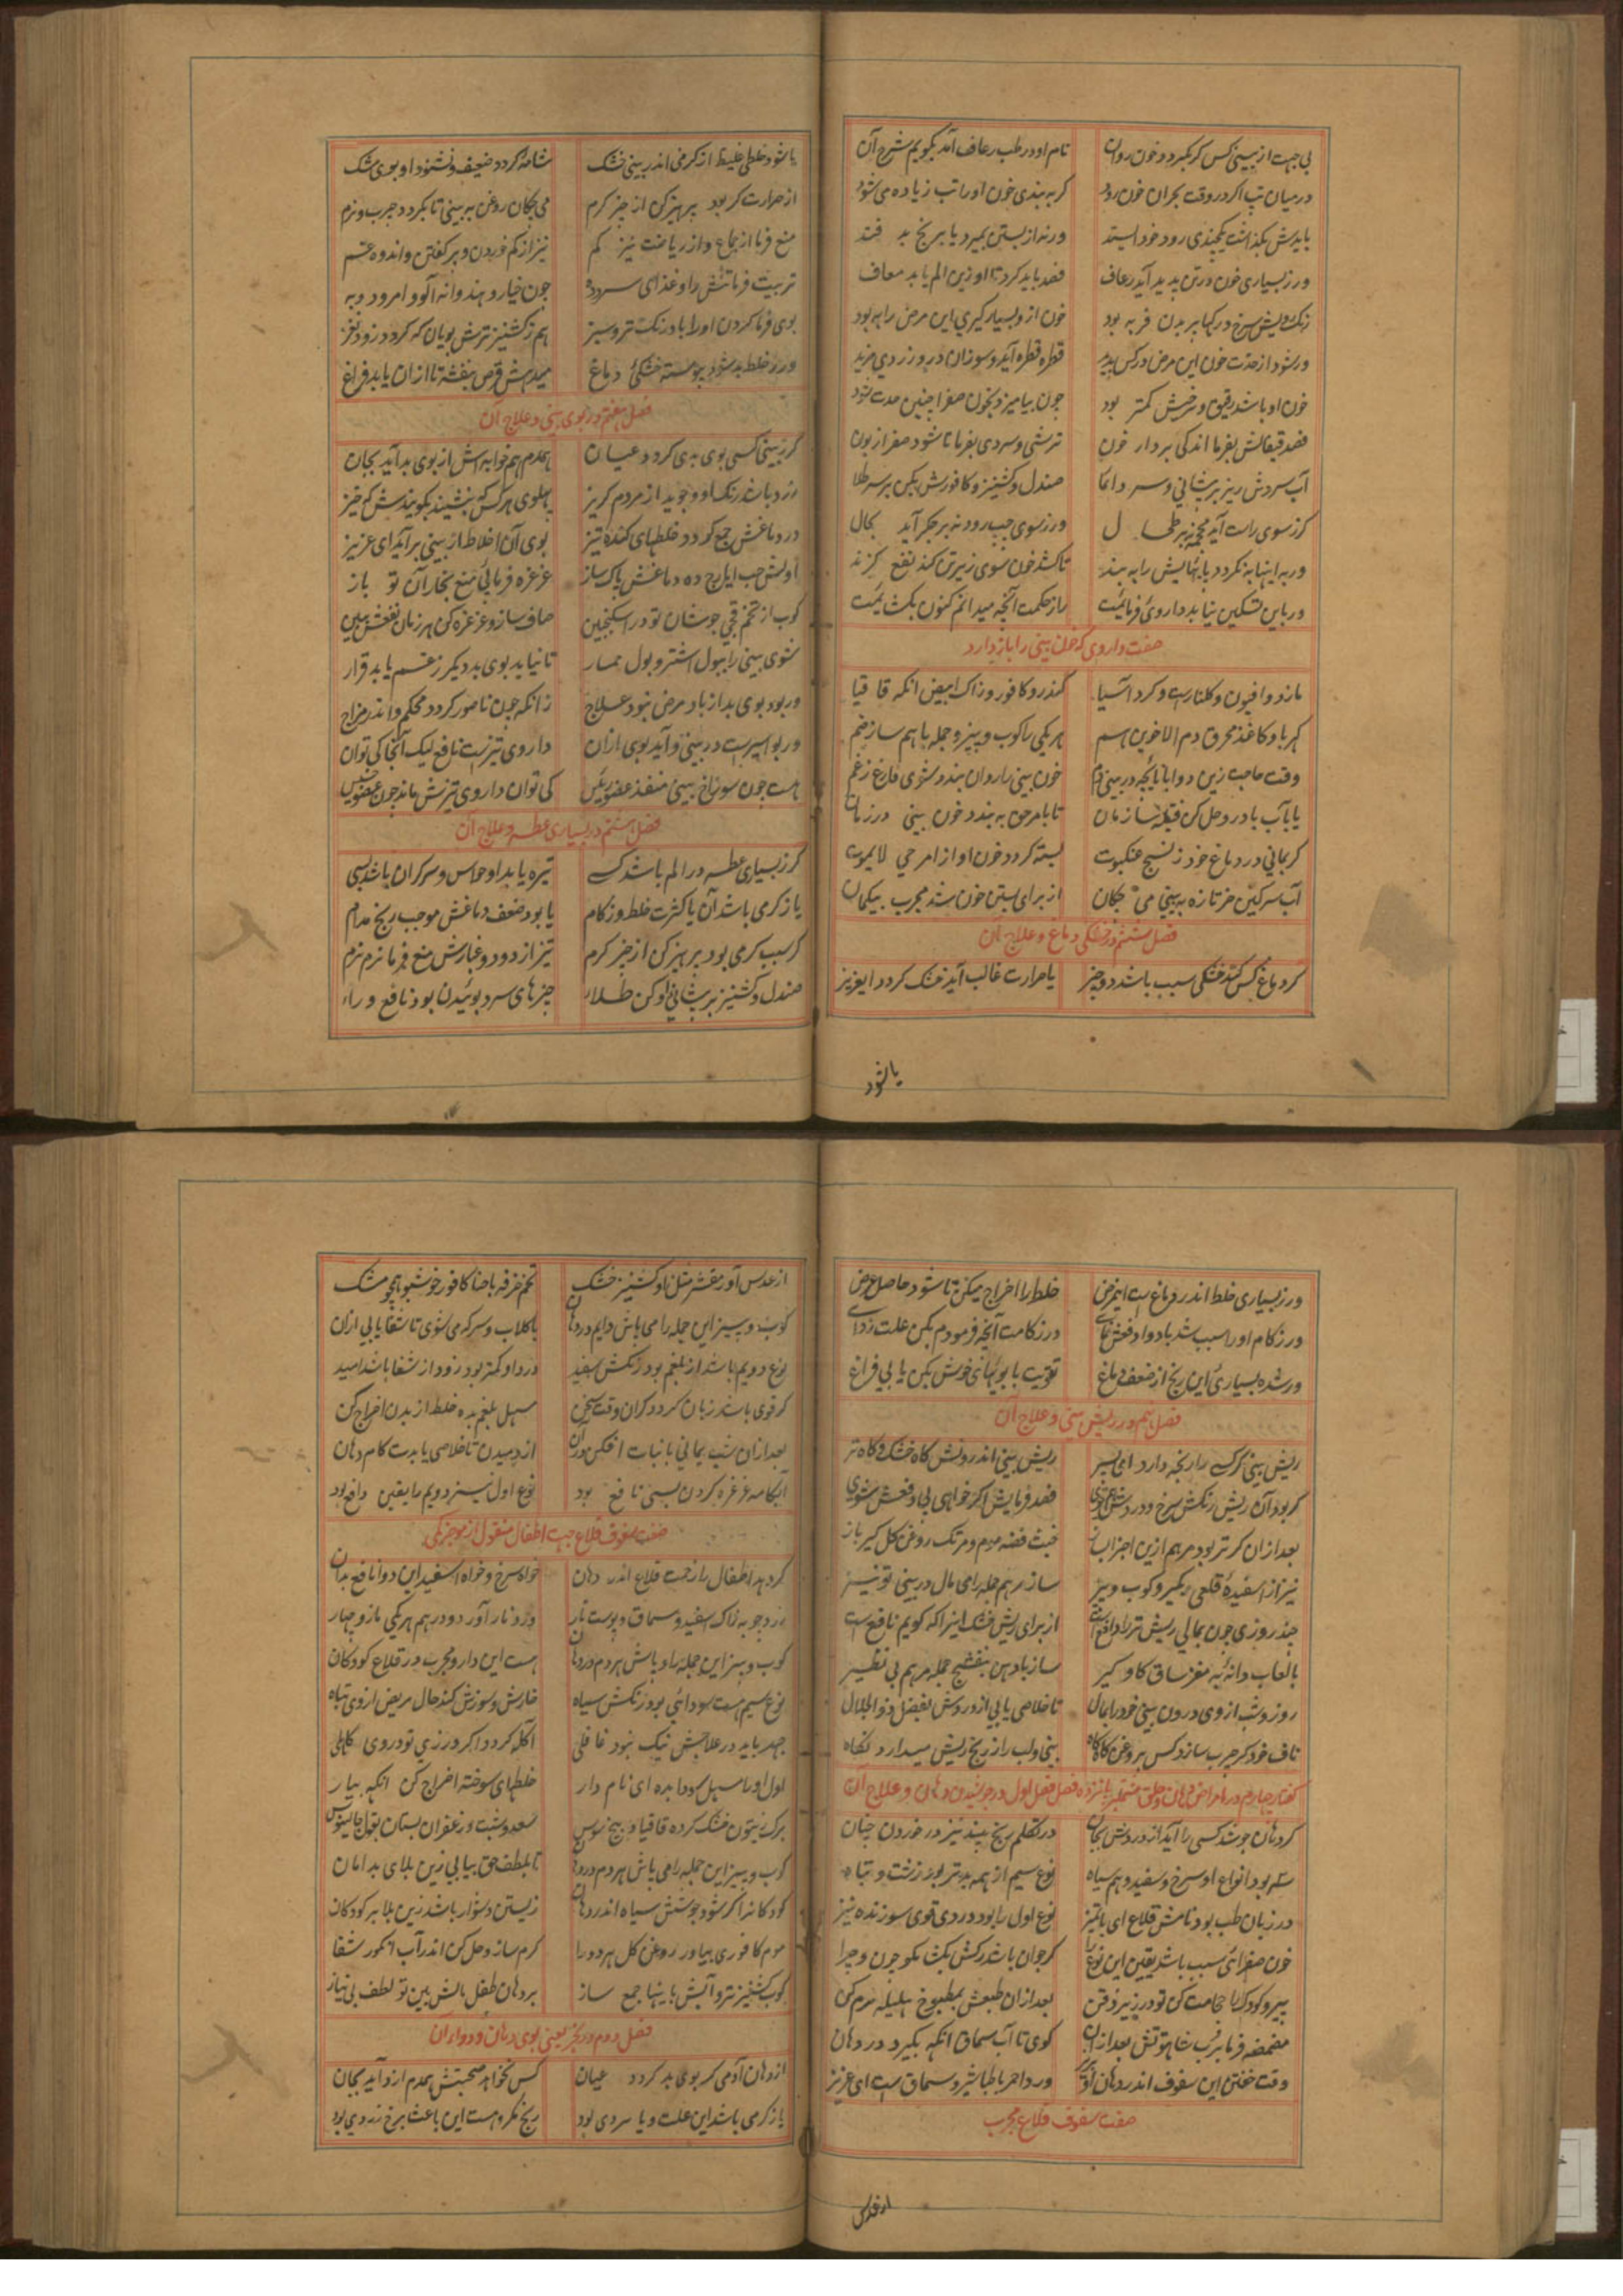 بی جهت از بینی کس گر بگیرد و خون روان نام او در طب رعاف آمد بگویم شرح آن
در میان تب اگر در وقت بحران خون رود گر به بندی خون او را تب زیاده می شود
بایدش بگذاشت یکچندی رود خود ایستد ورنه از بستن بمیرد یا برنج بد فتد
ور ز بسیاری خون در تن پدید آید رعاف فصد باید کرد تا او زین الم یابد معاف
رنک رویش سرخ و رکها پر بدن فربه بود خون ازو بسیار گیری این مرض را به بود
ور شود از حدت خون این مرض در کس پدید قطره قطره آید و سوزان در و زردی مزید
خون او باشد رقیق و سرخیش کمتر بود چون بیامیزد بخون صفرا چنین حدت شود
فصد قیفالش بفرما اندکی بردار خون ترشی و سردی بفرما تا شود صفرا زبون
آب سردش ریز بر پیشانی و سر دائما صندل و کشنیز و کافورش بکن بر سر طلا
گر ز سوی راست آید محجمه نه بر طحال ور ز سوی چپ رود نه بر جگر آید بحال
ور به اینها به نکردد پا بهایش را به بند تا کشد خون سوی زیرین کند نفع گزند
ور باین تسکین نیابد داروئی فرمائیت راز حکمت آنچه میدانم کنون بکشائیت
صفت داروی که خون بینی را باز دارد
مازو و افیون و کلنارست و کرد آسیا کندر و کافور و زاک ابیض انکه قاقیا
کهربا و کاغذ محرق دم الاخوین هم هر یکی را کوب و بیز و جمله با هم ساز ضم
وقت حاجت زین دواها پاچه در بینی دم خون بینی را روان بندد شوی فارغ ز غم
یا بآب بادروج حل کن فتیله ساز مان تا بامر حق به بندد خون بینی در زمان
گر بمانی در دماغ خود ز نسج عنکبوت بسته گردد خون او از امر حی لایموت
آب سرگین خر تازه به بینی می چکان از برای بستن خون شد مجرب بیکمان
فصل ششم در خشکی دماغ و علاج آن
گر دماغ کس کند خشکی سبب باشد دو چیز یا حرارت غالب آید خشک گردد ایعزیز
یا شود
یا شود خلطی غلیظ از گرمی اندر بینی خشک شامه گردد ضعیف و نشنود او بوی مشک
از حرارت گر بود پرهیز کن از چیز گرم می چکان روغن به بینی تا بگردد چرب و نرم
منع فرما از جماع و از ریاضت نیز کم نیز از کم خوردن و پر گفتن و اندوه و غم
تربیت فرما تنش را و غذای سرد ده چون خیار و هندوانه آلو و امرود و به
بوی فرما کردن او را بادرنک تر و سبز هم ز کشنیز ترش بویان که گردد زود نغز
ور ز خلط بد شود پیوسته خشکی دماغ میدهش قرص بنفشه تا ازان یابد فراغ
فصل هفتم در بوی بینی و علاج آن
گر ز بینی کسی بوی بدی گردد عیان همدم هم خوابه اش از بوی بد آید بجان
زرد باشد رنک او و جوید از مردم گریز پهلوی هر کس که بنشیند بگویندش که خیز
در دماغش جمع گردد خلطهای گنده تیز بوی آن اخلاط از بینی بر آید ای عزیز
اولش حب ایارج ده دماغش پاک ساز غرغره فرمائی منع بخار آن تو باز
کوب از تخم قجی جوشان تو در اسکنجبین صاف ساز و غرغره کن هر زمان نفعش ببین
شوی بینی را ببول اشتر و بول حمار تا نیاید بوی بد دیگر ز غم یابد قرار
ور بود بوی بد از باد مرض نبود علاج زانکه چون ناصور گردد محکم و اندر مزاج
ور بواسیر ست در بینی و آید بوی ازان داروی تیزست نافع لیک آنجا کی توان
هست چون سوراخ بینی منفذ عضو رئیس کی توان داروی تیزش ماند چون عضو خسیس
فصل هشتم در بسیاری عطسه و علاج آن
گر ز بسیاری عطسه در الم باشد کسی تیره یابد او حواس و سر گران باشد بسی
یا ز گرمی باشد آن یا کثرت خلط و زکام یا بود ضعف دماغش موجب رنج مدام
گر سبب گرمی بود پرهیز کن از چیز گرم نیز از دود و غبارش منع فرما نرم نرم
صندل و کشنیز بر پیشانی او کن طلا چیزهای سرد بوئیدن بود نافع ورا
ور ز بسیاری خلط اندر دماغ است این مرض خلط را اخراج میکن تا شود حاصل غرض
ور زکام او را سبب شد با دوا دفعش نمای در زکامت آنچه فرمودم بکن علت زدای
ور شده بسیاری این رنج از ضعف دماغ تقویت با بویهای خوش بکن یابی فراغ
فصل نهم در ریش بینی و علاج آن
ریش بینی گر کسی را رنجه دارد ای پسر ریش بینی اندرونش گاه خشک و گاه تر
گر بود آن ریش رنگش سرخ و درد فصد فرمایش اگر خواهی پی دفعش شوی
بعد ازان گر تر بود مرهم ازین اجزا بساز خبث فضه موم و مرتک روغن گل گیر باز
نیز از اسفیده قلعی بگیر و کوب و بیز ساز مرهم جمله را می مال در بینی تو نیز
چند روزی چون بمالی ریش تر را دافع است از برای ریش خشک اینرا که گویم نافع است
با لعاب دانه به مغز ساق گاو گیر ساز با دهن بنفشج جمله مرهم بی نظیر
روز و شب از وی درون بینی خود را بمال تا خلاصی یابی از دردش بفضل ذو الجلال
ناف خود گر چرب سازد کس بروغن گاه گاه بینی و لب را ز رنج ریش میدارد نگاه
گفتار چهارم در امراض دهان و حلق مشتمل بر پانزده فصل فصل اول در جوشیدن دهان و علاج آن
گر دهان جوشد کسی را آید از دردش بجان در تکلم رنج بیند نیز در خوردن چنان
سه بود انواع او سرخ و سفید و هم سیاه نوع سیم از همه بدتر بود زشت و تباه
در زبان طب بود نامش قلاع ای با تمیز نوع اول را بود دردی قوی سوزنده نیز
خون صفرائی سبب باشد یقین این نوع را گر جوان باشد رگش بکشا مگو چون و چرا
پیر و کودک را حجامت کن تو در زیر ذقن بعد ازان طبعش بمطبوخ هلیله نرم کن
مضمضه فرما برب شاه توتش بعد ازان گوی تا آب سماق انگه بگیرد در دهان
وقت خفتن این سفوف اندر دهان ورد احمر با طباشیر و سماق است ای عزیز
صفت سفوف قلاع مجرب
از عدس
از عدس آور مقشر مثل او کشنیز خشک تخم خرفه با حنا کافور خوشبو همچو مشک
کوب و بیز این جمله را می پاش دایم در دهان با گلاب و سرکه می شوی تا شفا یابی ازان
نوع دویم باشد از بلغم بود رنگش سفید درد او کمتر بود زود از شفا باشد امید
گر قوی باشد زبان گردد گران وقت سخن مسهل بلغم بده خلط از بدن اخراج کن
بعد ازان شب یمانی با نبات افکن دران از دمیدن تا خلاصی یابدت کام و دهان
آبکامه غرغره کردن بسی نافع بود نوع اول نیز دویم را یقین دافع بود
صفت سفوف قلاع جهت اطفال منقول از موجز مکی
گر دهد اطفال را زحمت قلاع اندر دهان خواه سرخ و خواه اسفید این دوا نافع بدان
زرد چوبه زاک اسفید و سماق و پوست نار ورد و نار آور دو درهم هر یکی مازو چهار
کوب و بیز این جمله را و پاش هر دم در دهان هست این دارو مجرب در قلاع کودکان
نوع سیم هست سودائی بود رنگش سیاه خارش و سوزش کند حال مریض از وی تباه
جهد باید در علاجش نیک نبود غافلی آکله گردد اگر ورزی تو در وی کاهلی
اول او را مسهل سودا بده ای نام دار خلطهای سوخته اخراج کن انگه بیار
برک زیتون خشک کرده قاقیا و بیخ سوس سعد و شب و زعفران بستان بقول جالینوس
کوب و بیز این جمله را می پاش هر دم در دهان تا بلطف حق بیابی زین بلای بد امان
کودکانرا گر شود جوشش سیاه اندر دهان زیستن دشوار باشد زین بلا بر کودکان
موم کافوری بیاور روغن گل هر دو را گرم ساز و حل کن اندر آب انگور شفا
کوب کشنیز تر و آبش باینها جمع ساز بر دهان طفل مالش بین تو لطف بی نیاز
فصل دوم در بخر یعنی بوی دهان و دوای آن
از دهان آدمی گر بوی بد گردد عیان کس نخواهد صحبتش همدم ازو آید بجان
یا ز گرمی باشد این علت و یا سردی بود رنج مکروهست این باعث برخ زردی بود